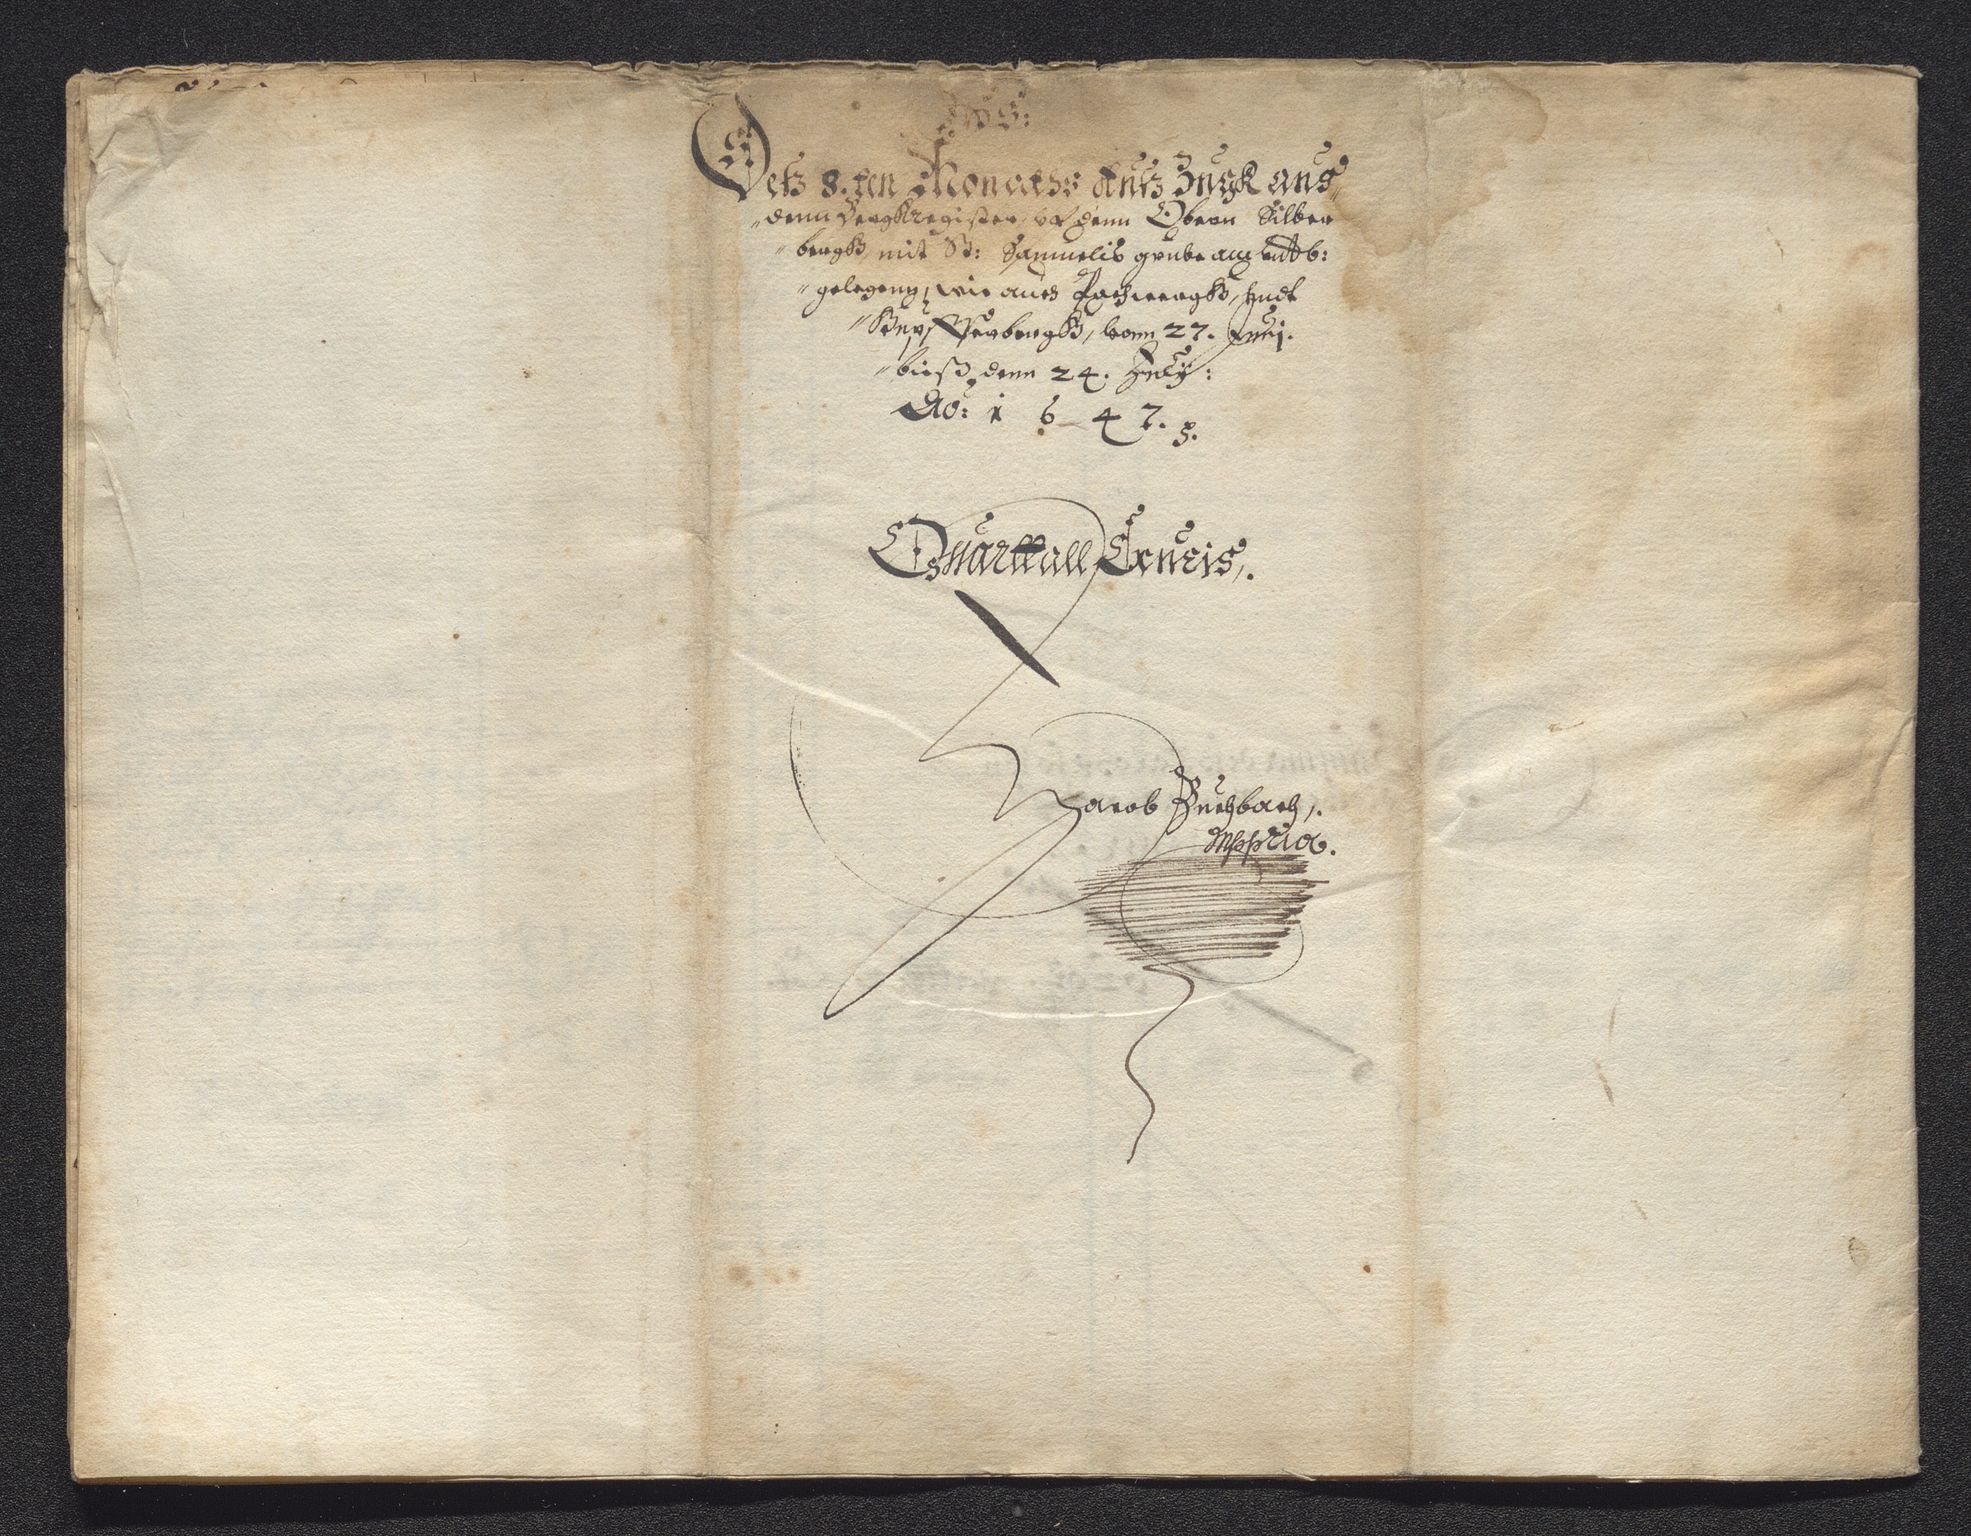 Deß 8.ten Monaths Auß Zugk aus
denn Bergkregister vor denn Obern Silber
bergk, mit St: Samuelis grube am
gelegenn, wie auch Pochwergk, undt
bergk, vonn 27. Juni.
bieß denn 24. July:
Ao: 1647.
Quarttall Crucis,.
Jacob Buchbach,.
Mppria.